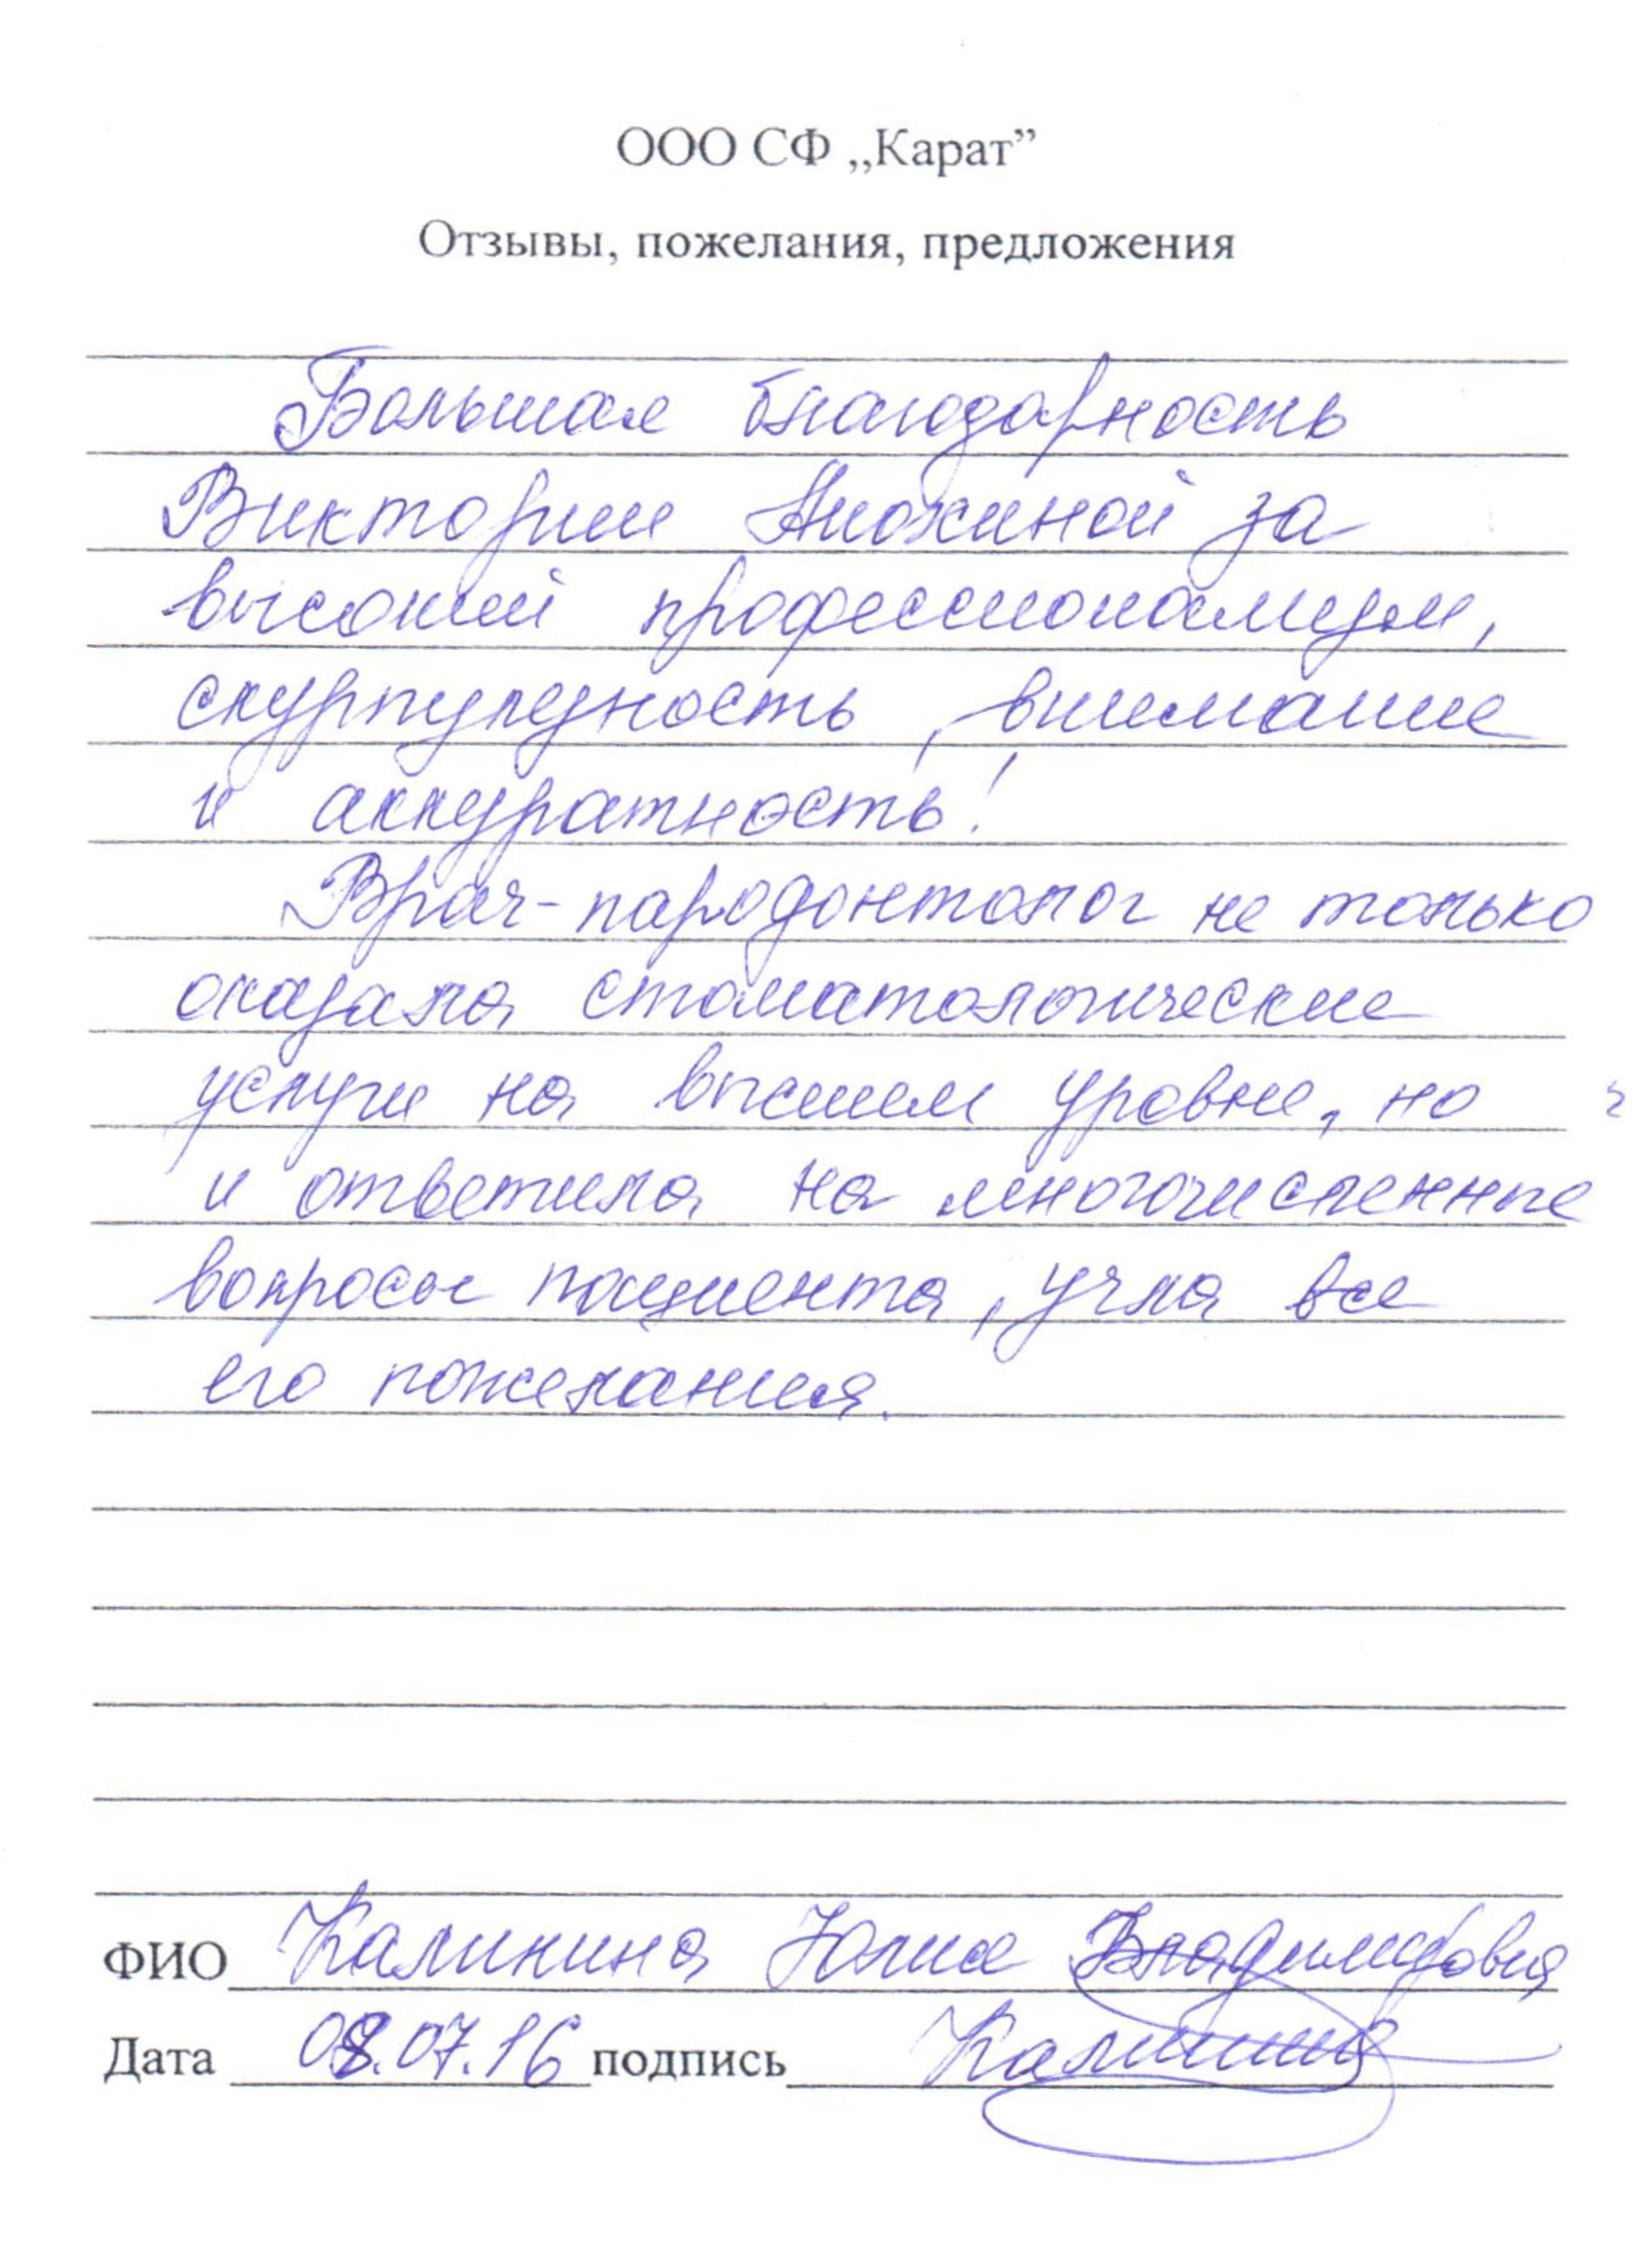 ООО СФ „Карат”
Отзывы, пожелания, предложения
Большая благодарность
Виктории Анохиной за
высокий профессионализм,
скурпулезность, внимание
и аккуратность!
Врач-пародонтолог не только
оказала стоматологические
услуги на высшем уровне, но
и ответила на многочисленные
вопросы пациента, учла все
его пожелания.
ФИО Калинина Юлия Владимировна
Дата 08.07.16 подпись Калинина